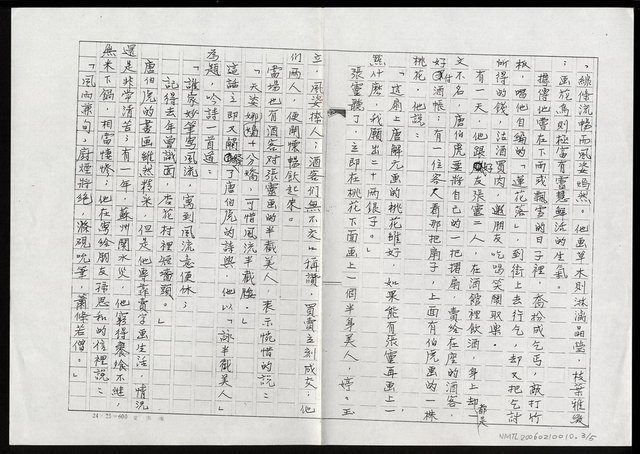 「線條流暢而風姿嫣然。他畫草木則淋漓
；畫花鳥則極富有智慧鮮活的生氣。
據傳他曾在下雨或飄雪的日子裡，喬扮成乞丐，敲打竹
板，唱他自編的「蓮花落」，到街上去行乞，卻又把乞討
所得的錢，沽酒買肉，邀朋友吃喝笑鬧取樂。
有一天，他跟好友張靈二人，在酒館裡飲酒，身上却都是
文不名，唐伯虎要將自己的一把摺扇，賣給在座的酒客，
好酒帳；有一位客人看那把扇子，上面有伯虎画的一株
桃花，他說：
「這扇上唐解元画的桃花雖好，如果能有張靈再画上一
點什麼，我願出二十兩銀子。」
張靈聽了，立即在桃花下面畫上一個半身美人，婷婷玉
立，風姿撩人；酒客们無不交口稱讚，買賣立刻成交；他
们两人，便開懷暢飲起來。
當場也有酒客对張靈的半截美人，表示惋惜的說：
「天姿娜嬌十分嬌，可惜風流半截腰。」
這話立即又觸發了唐伯虎的詩興，他以「詠半截美人」
為題，吟詩一首道：
「誰家妙筆寫風流，寫到風流意便休；
記得去年曾識面，杏花村裡短牆頭。」
唐伯虎的書画雖然精采，但是他專靠賣字画生活，情況
還是非常清苦；有一年，蘇州鬧水災，他窮得饔飧不繼，
無米下鍋，相當悽慘；他在寫給朋友掃思和的信裡說：
「風雨兼旬，廚煙將絕，滌硯吮筆，蕭條若僧。」
24×25=600
NMTL20060210010.3/5